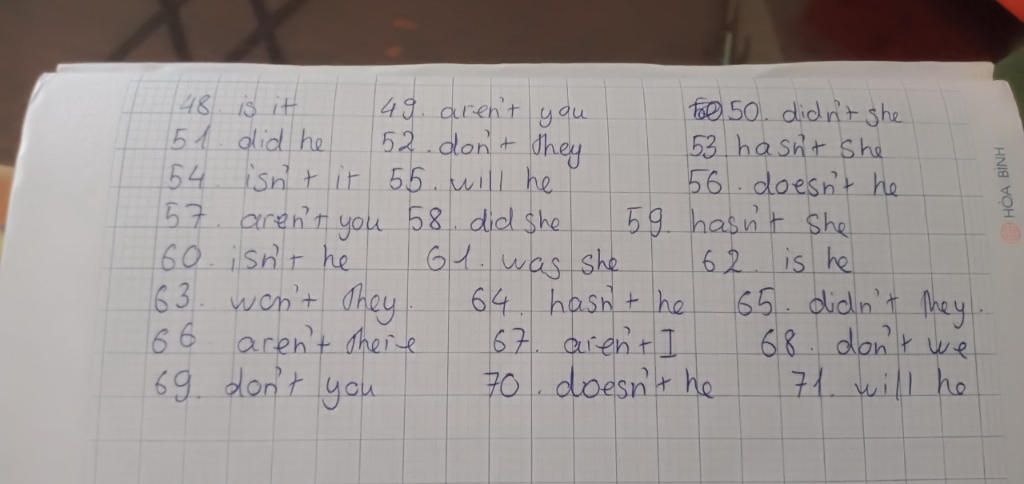 48. is it 49. aren't you 50. didn't she
51. did he 52. don't they 53 hasn't she
54. isn't it 55. will he 56. doesn't he
57. aren't you 58. did she 59. hasn't she
60. isn't he 61. was she 62. is he
63. won't they. 64. hasn't he 65. didn't they.
66 aren't there 67. aren't I 68. don't we
69. don't you 70. doesn't he 71. will he
HÒA BÌNH